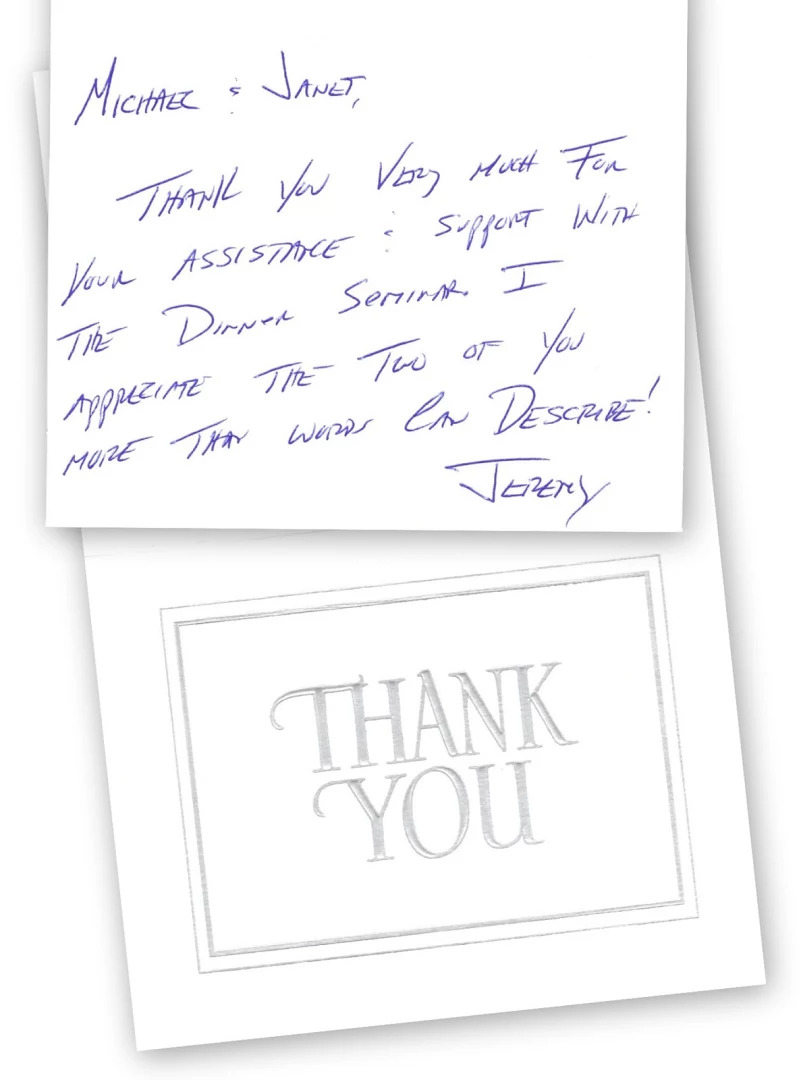 MICHAEL & JANET,
THANK YOU VERY MUCH FOR
YOUR ASSISTANCE & SUPPORT WITH
THE DINNER SEMINAR. I
APPRECIATE THE TWO OF YOU
MORE THAN WORDS CAN DESCRIBE!
JEREMY
THANK
YOU